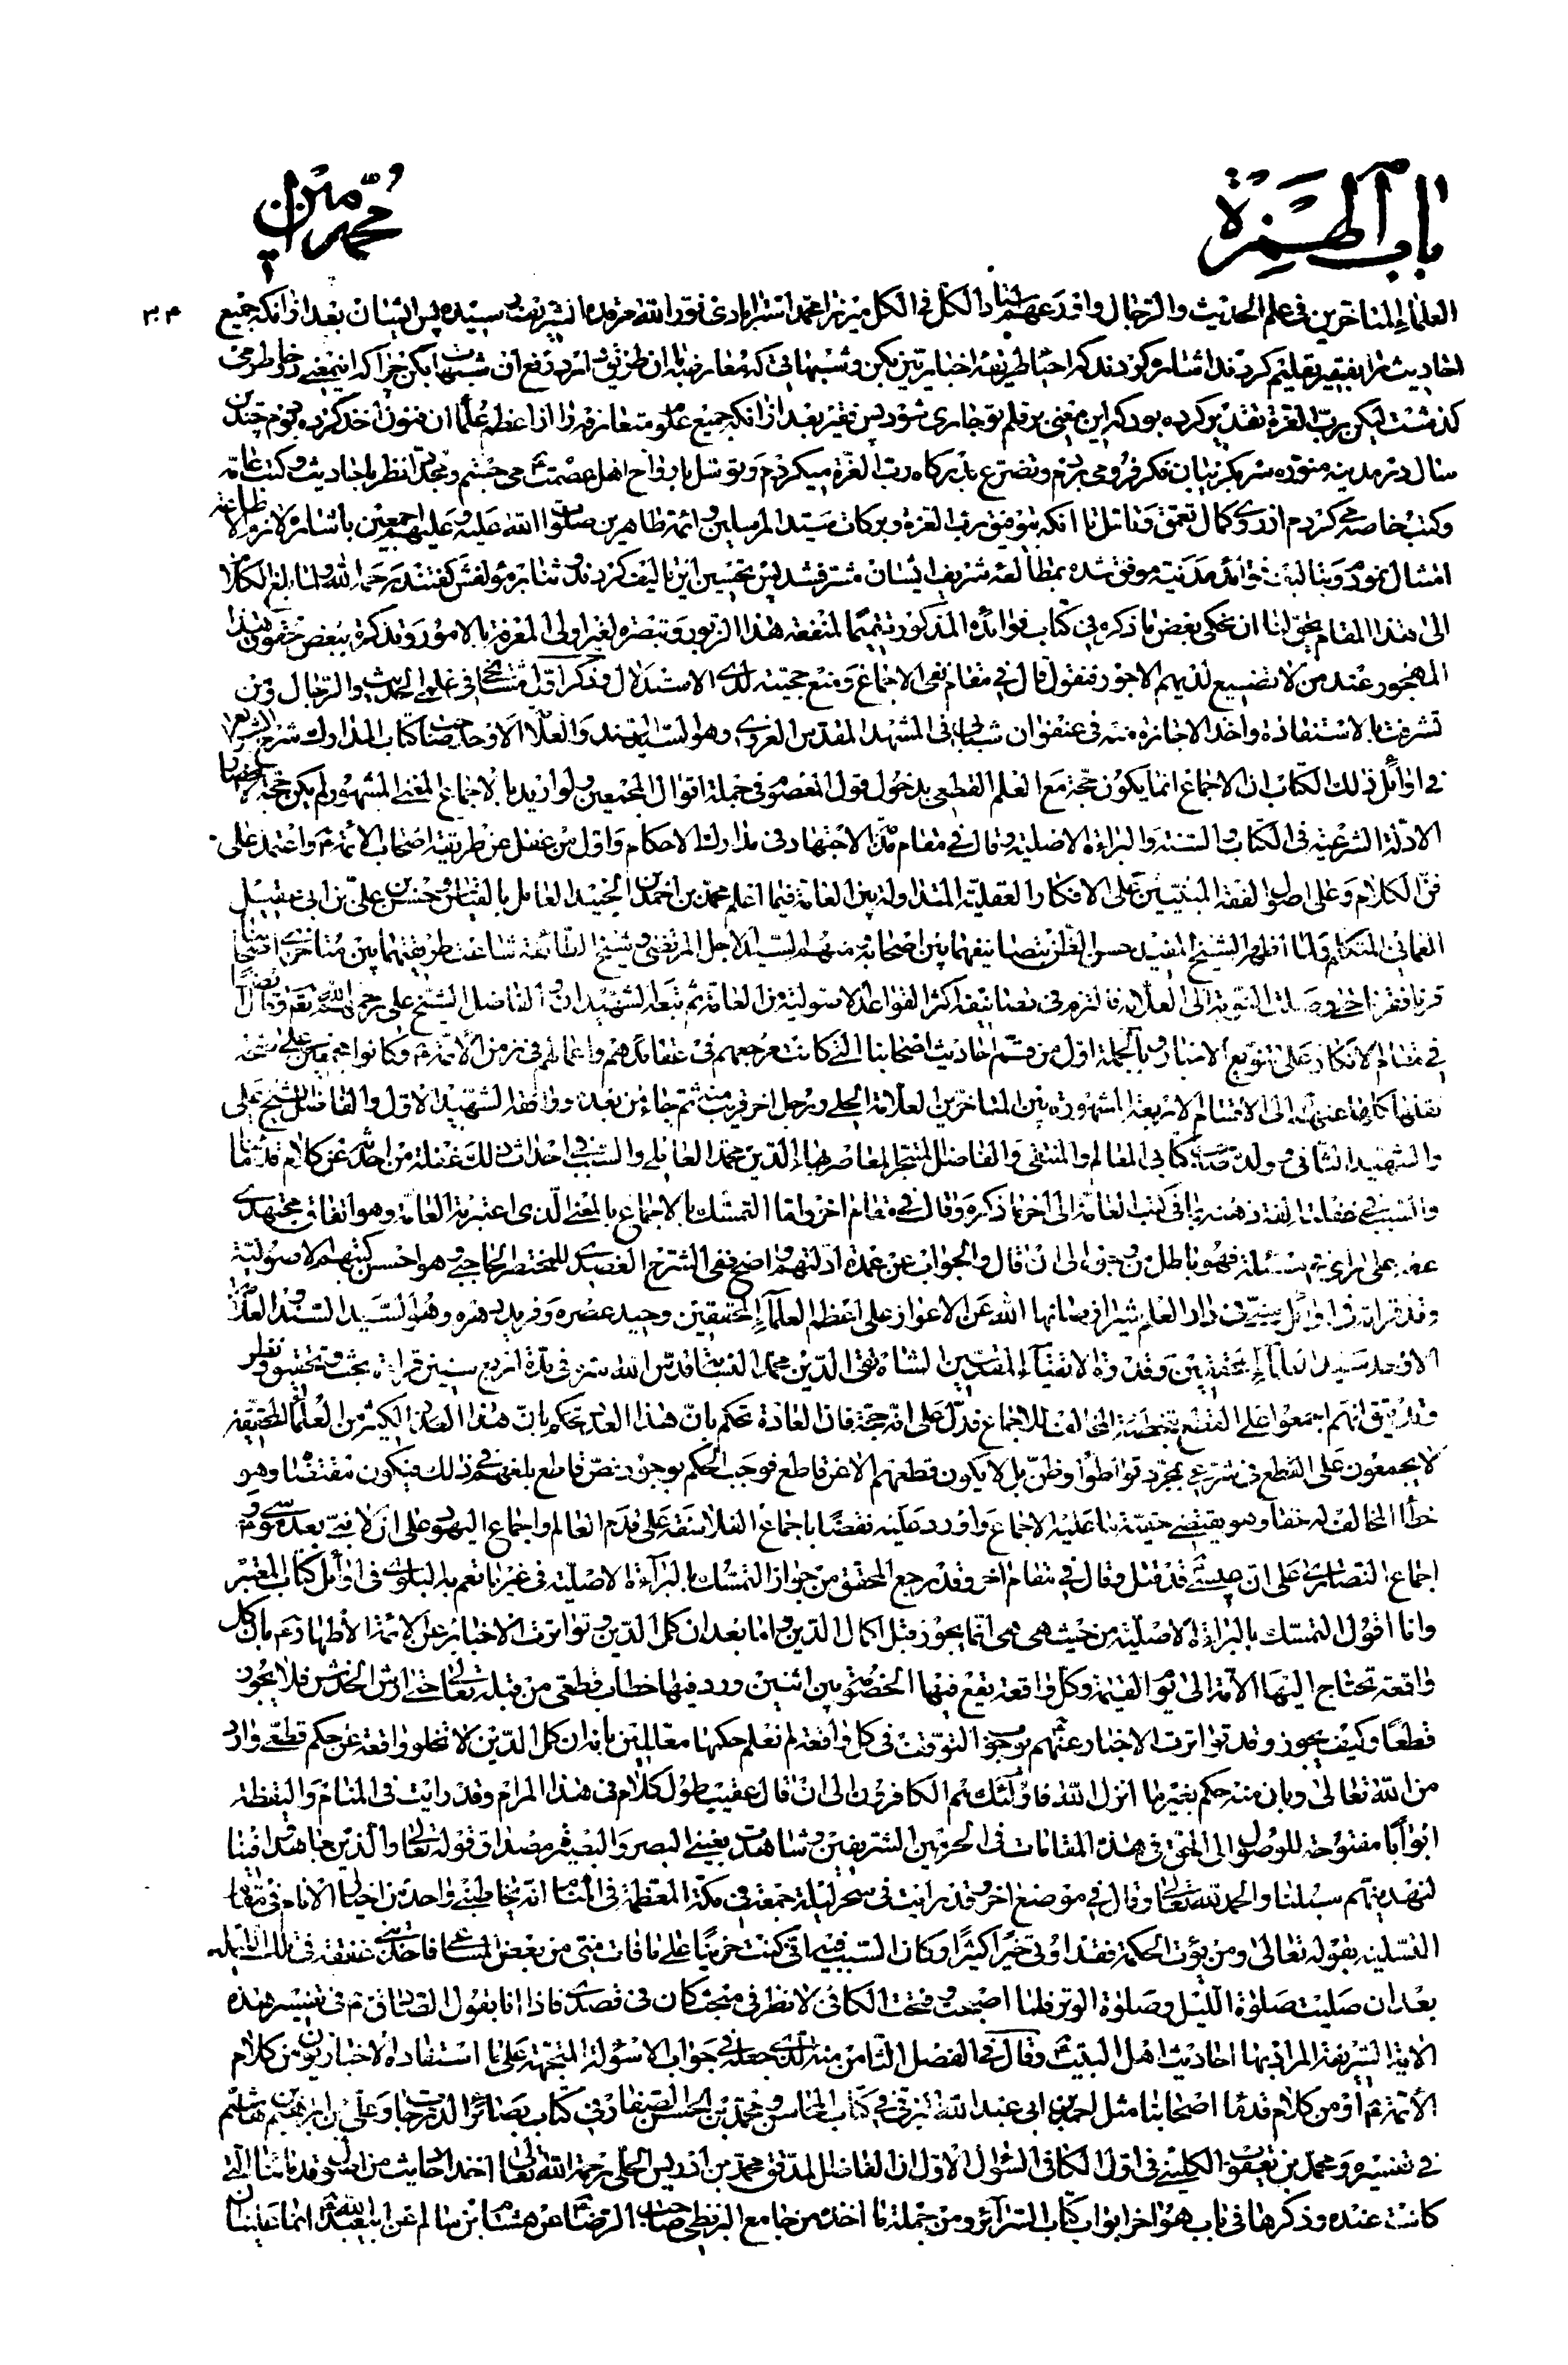 باب الهمزة
محمد امين
۳۴
العلماء المتاخرين في علم الحديث والرجال واورعهم استاد الكل في الكل ميرزا محمد استرابادى نور الله مرقده الشريف رسيده پس ايشان بعد از انكه جميع
احاديث را بفقير تعليم كردند اشاره كردند كه احياء طريقه اخباريين بكن وشبهاتى كه معارضه بان طريق دارد رفع ان شبهات بكن چرا كه اينمعنى در خاطر مى
كذشت ليكن رب العزة تقدير كرده بود كه اين معنى بر قلم تو جارى شود پس فقير بعد از انكه جميع علوم متعارفه را از اعظم علماء ان فنون اخذ كرده بودم چندين
سال در مدينه منوره سر بكريبان فكر فرو مى بردم وتضرع بدركاه رب العزة ميكردم وتوسل بارواح اهل عصمت ع مى جستم ومجددا نظر باحاديث وكتب عامه
وكتب خاصه مى كردم از روى كمال تعمق وتامل تا انكه بتوفيق رب العزة وبركات سيد المرسلين وائمة طاهرين صلوات الله عليه وعليهم اجمعين باشاره لازم الاطاعه
امتثال نمودم وبتاليف فوائد مدنيه موفق شده بمطالعه شريف ايشان مشرف شد پس تحسين اين تاليف كردند وثنا بر مؤلفش كفتند رحمه الله ولما بلغ الكلام
الى هذا المقام يحق لنا ان نحكى بعض ما ذكره في كتاب فوائده المذكور تتميما لمنفعة هذا الزبور وتبصرة لغير اولى المعرفة بالامور وتذكرة ببعض حقوق هذا
المهجور عند من لا تضييع لديهم الاجور فنقول قال في مقام نفى الاجماع ومنع حجيته لدى الاستدلال وذكر اول مشايخى في علمى الحديث والرجال ومن
تشرفت بالاستفادة واخذ الاجازة منه في عنفوان شبابى في المشهد المقدس الغروى وهو السيد السند والعلامة الاوحد صاحب كتاب المدارك شرح الشرايع
في اوائل ذلك الكتاب ان الاجماع انما يكون حجة مع العلم القطعى بدخول قول المعصوم في جملة اقوال المجمعين ولو اريد بالاجماع المعنى المشهور لم يكن حجة لانحصار
الادلة الشرعية في الكتاب والسنة والبراءة الاصلية وقال في مقام منع الاجتهاد في مدارك الاحكام واول من غفل عن طريقة اصحاب الائمة ع واعتمد على
فن الكلام وعلى اصول الفقه المبنيين على الافكار العقلية المتداولة بين العامة فيما اعلم محمد بن احمد بن الجنيد العامل بالقياس وحسن بن على بن ابى عقيل
العمانى المتكلم ولما اظهر الشيخ المفيد حسن الظن بتصانيفهما بين اصحابه ومنهم السيد الاجل المرتضى وشيخ الطائفة شاعت طريقتهما بين متاخرى اصحابنا
قرنا فقرنا حتى وصلت النوبة الى العلامة فالتزم في تصانيفه اكثر القواعد الاصولية من العامة ثم تبعه الشهيدان والفاضل الشيخ على رحمهم الله تعالى وقال ايضا
في مقام الانكار على تنويع الاخبار وبالجملة اول من قسم احاديث اصحابنا التى كانت مرجعهم في عقائدهم واعمالهم في زمن الائمة ع وكانوا مجمعين على صحة
نقلها كلها عنهم الى الاقسام الاربعة المشهورة بين المتاخرين العلامة الحلى ورجل اخر قريب منه ثم جاء من بعده ووافقه الشهيد الاول والفاضل الشيخ على
والشهيد الثانى وولده صاحب كتابى المعالم والمنتقى والفاضل المتبحر المعاصر بهاء الدين محمد العاملى والسبب في احداث ذلك غفلة من احدثه عن كلام قدمائنا
والسبب في غفلته الفة ذهنه بما في كتب العامة الى اخر ما ذكره وقال في مقام اخر واما التمسك بالاجماع بالمعنى الذى اعتبرته العامة وهو اتفاق مجتهدى
عصر على راى في مسئلة فهو باطل من وجوه الى ان قال والجواب عن عمدة ادلتهم واضح ففى الشرح العضدى للمختصر الحاجبى وهو احسن كتبهم الاصولية
وقد قراته في اوائل سنى في دار العلم شيراز صانها الله عن الاعواز على اعظم العلماء المحققين وحيد عصره وفريد دهره وهو السيد السند العلامة
الاوحد سيد العلماء المحققين وقدوة الاتقياء المقدسين الشاه تقى الدين محمد النسابة قدس الله سره في مدة اربع سنين قراءة بحث وتحقيق ونظر
وتدقيق انهم اجمعوا على القطع بتخطئة المخالف للاجماع فدل على انه حجة فان العادة تحكم بان هذا العدد الكثير من العلماء المحققين
لا يجمعون على القطع في شرعى بمجرد تواطؤ وظن بل لا يكون قطعهم الا عن قاطع فوجب الحكم بوجود نص قاطع بلغهم في ذلك فيكون مقتضاه وهو
خطأ المخالف له حقا وهو يقتضى حقية ما عليه الاجماع واورد عليه نقضا باجماع الفلاسفة على قدم العالم واجماع اليهود على ان لا نبى بعد موسى و
اجماع النصارى على ان عيسى قد قتل وقال في مقام اخر وقد رجع المحقق من جواز التمسك بالبراءة الاصلية في غير ما تعم به البلوى في اوائل كتاب المعتبر
وانا اقول التمسك بالبراءة الاصلية من حيث هى هى انما يجوز قبل اكمال الدين واما بعد ان كمل الدين وتواترت الاخبار عن الائمة الاطهار ع بان كل
واقعة تحتاج اليها الامة الى يوم القيمة وكل واقعة تقع فيها الخصومة بين اثنين ورد فيها خطاب قطعى من قبله تعالى حتى ارش الخدش فلا يجوز
قطعا وكيف يجوز وقد تواترت الاخبار عنهم ع بوجوب التوقف في كل واقعة لم نعلم حكمها معللين بانه ان كمل الدين لا تخلو واقعة عن حكم قطعى وارد
من الله تعالى وبان من حكم بغير ما انزل الله فاولئك هم الكافرون الى ان قال عقيب طول كلام في هذا المرام وقد رايت في المنام واليقظة
ابوابا مفتوحة للوصول الى الحق في هذه المقامات في الحرمين الشريفين وشاهدت بعينى البصر والبصيرة مصداق قوله تعالى والذين جاهدوا فينا
لنهدينهم سبلنا والحمد لله تعالى وقال في موضع اخر وقد رايت في سحر ليلة جمعة في مكة المعظمة في المنام انه يخاطبنى واحد من اخيار الانام في مقام
التسلية بقوله تعالى ومن يؤت الحكمة فقد اوتى خيرا كثيرا وكان السبب فيه انى كنت حزينا على ما فات منى من بعض المساعى فاخذتنى غفقة في تلك الليلة
بعد ان صليت صلوة الليل وصلوة الوتر فلما اصبحت وفتحت الكافى لانظر في مبحث كان في قصدى فاذا انا بقول الصادق ع في تفسير هذه
الاية الشريفة المراد بها احاديث اهل البيت ع وقال في الفصل الثامن منه الذى جعله في جواب الاسئولة المتجهة على ما استفاده الاخباريون من كلام
الائمة ع او من كلام قدماء اصحابنا مثل احمد بن ابى عبد الله البرقى في كتاب المحاسن ومحمد بن الحسن الصفار في كتاب بصائر الدرجات وعلى بن ابراهيم بن هاشم
في تفسيره ومحمد بن يعقوب الكلينى في اول الكافى السؤال الاول ان الفاضل المدقق محمد بن ادريس الحلى رحمة الله تعالى اخذ احاديث من اصول قدمائنا التى
كانت عنده وذكرها في باب هو اخر ابواب كتاب السرائر ومن جملة ما اخذه من جامع البزنطى صاحب الرضا ع عن هشام بن سالم عن ابى عبد الله ع انما علينا ان